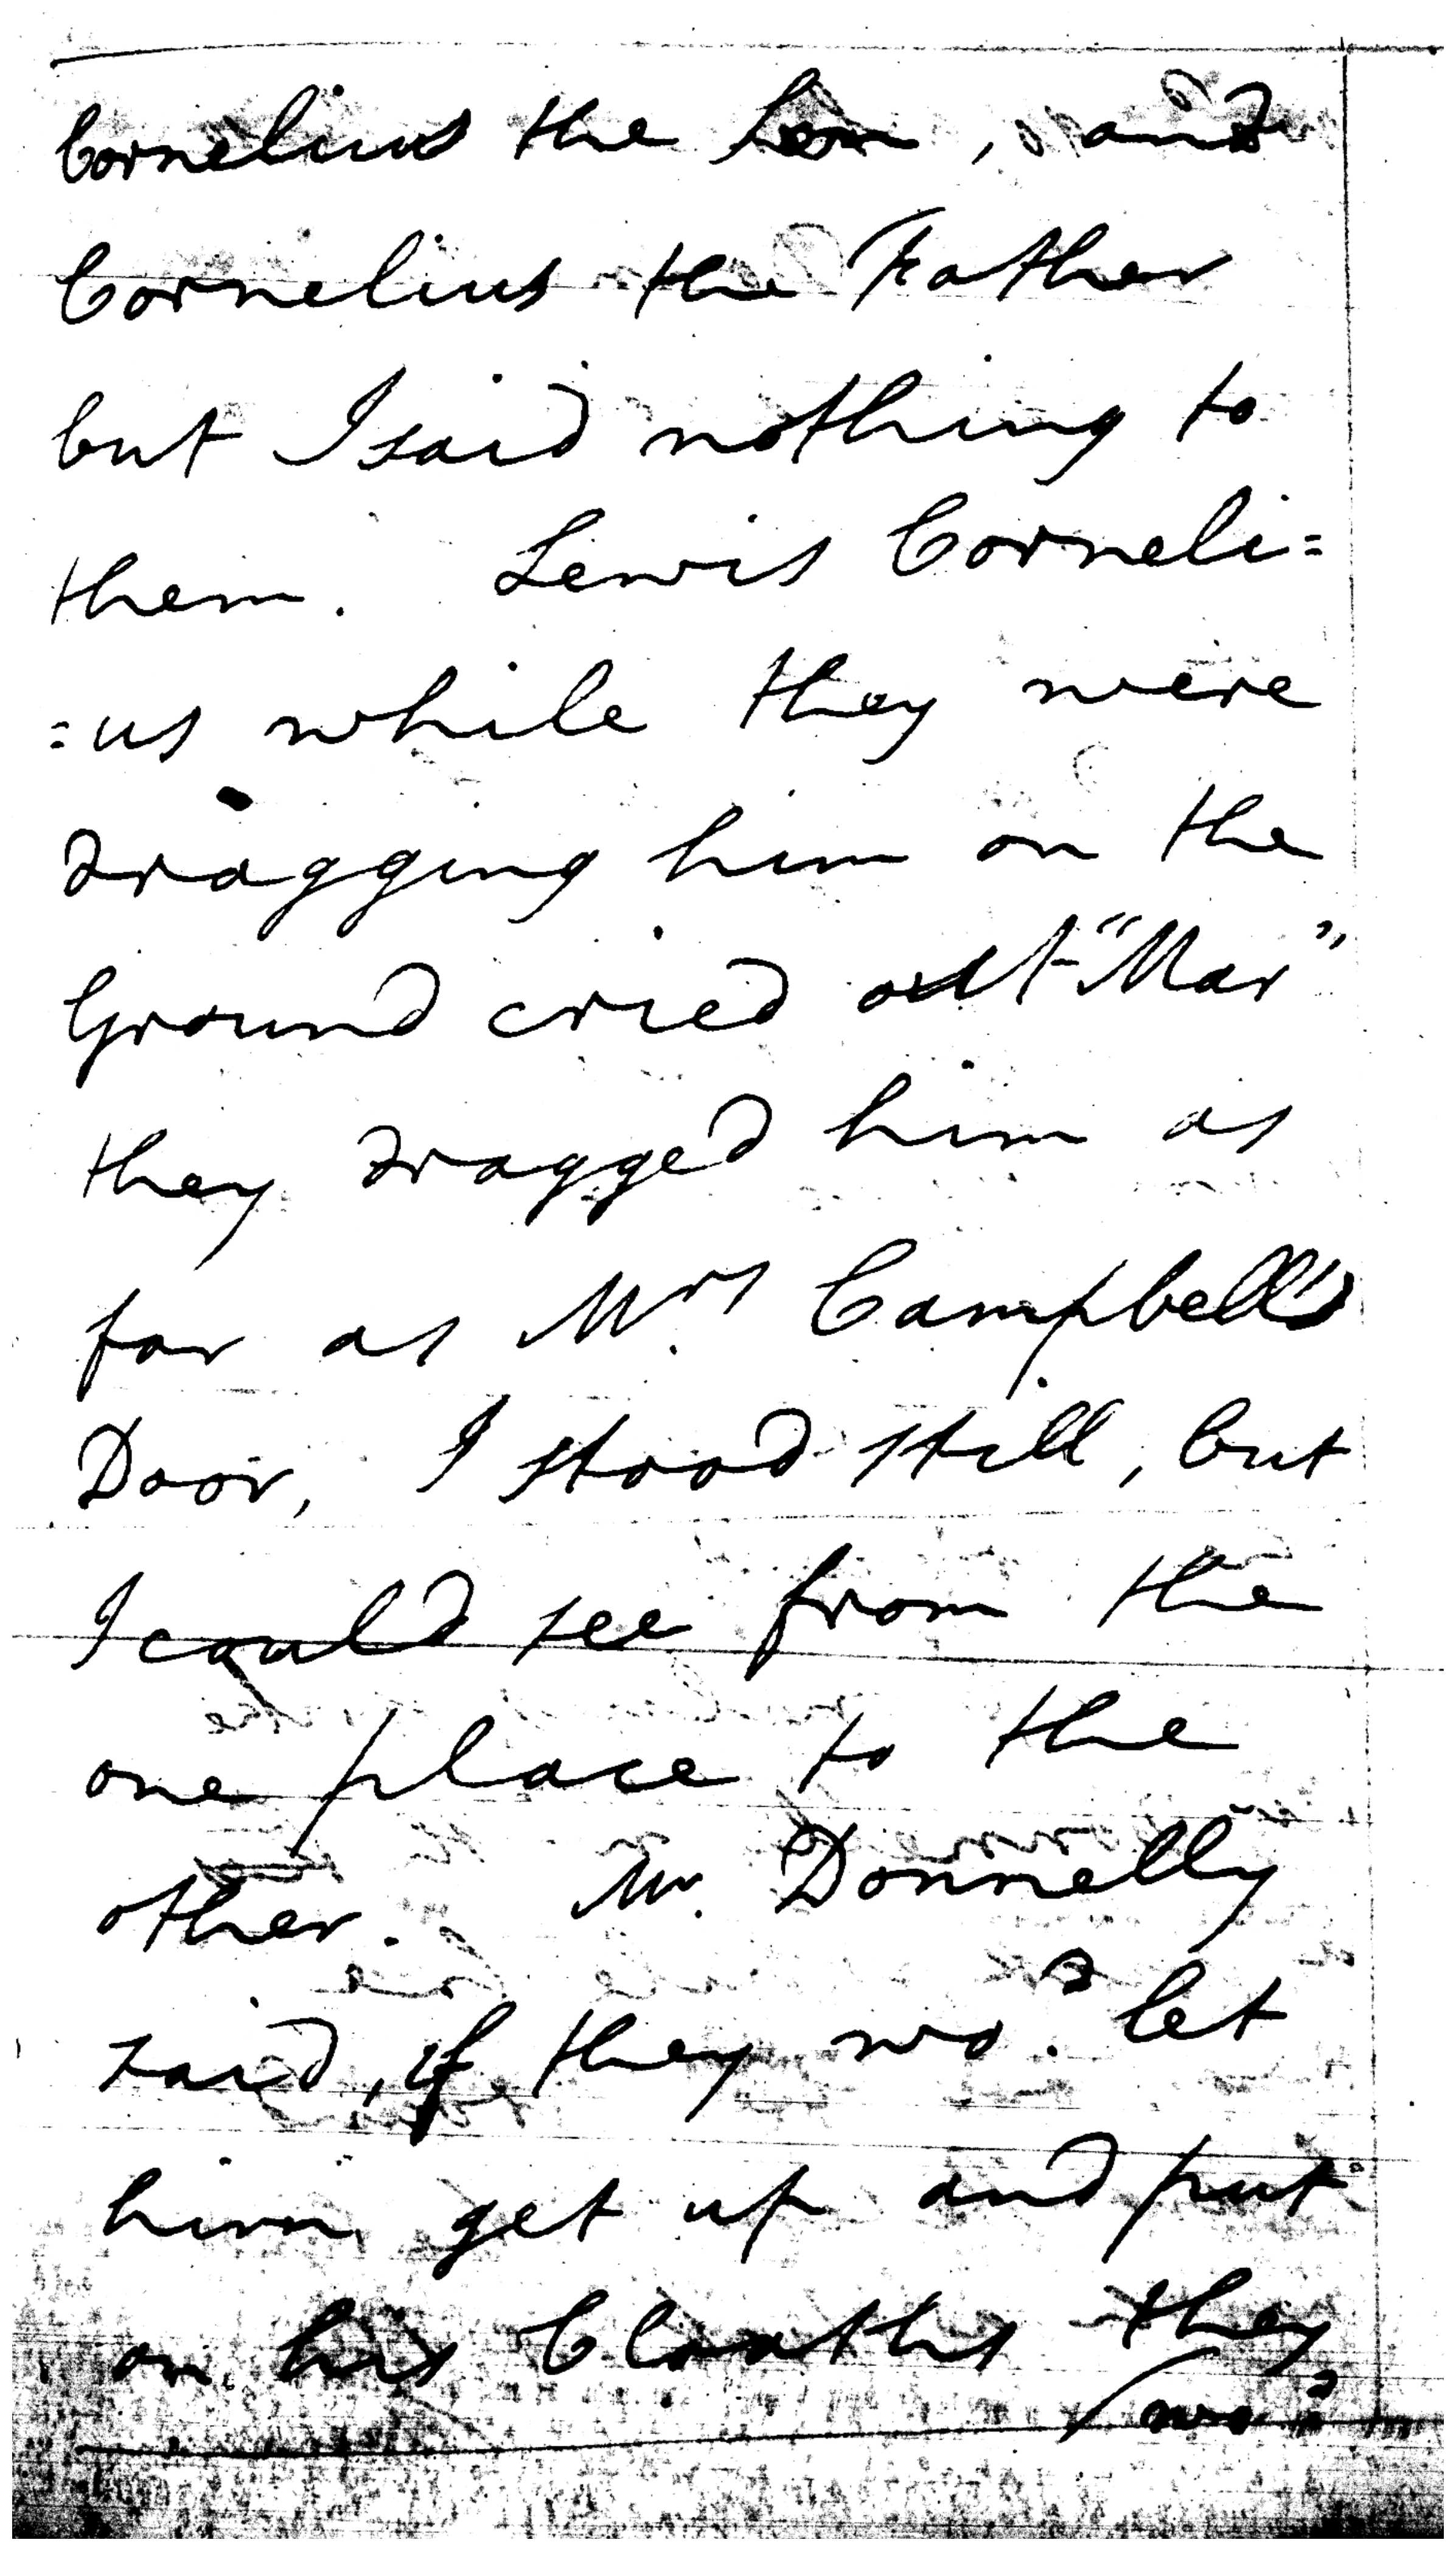 Cornelius the Son, and
Cornelius the Father
but I said nothing to
them. Lewis Corneli=
=us while they were
dragging him on the
Ground cried out "Mar"
they dragged him as
far as Mrs Campbell's
Door, I stood still, but
I could see from the
one place to the
other. Mr. Donnelly
said, if they wod let
him get up and put
on his Cloaths they
wod